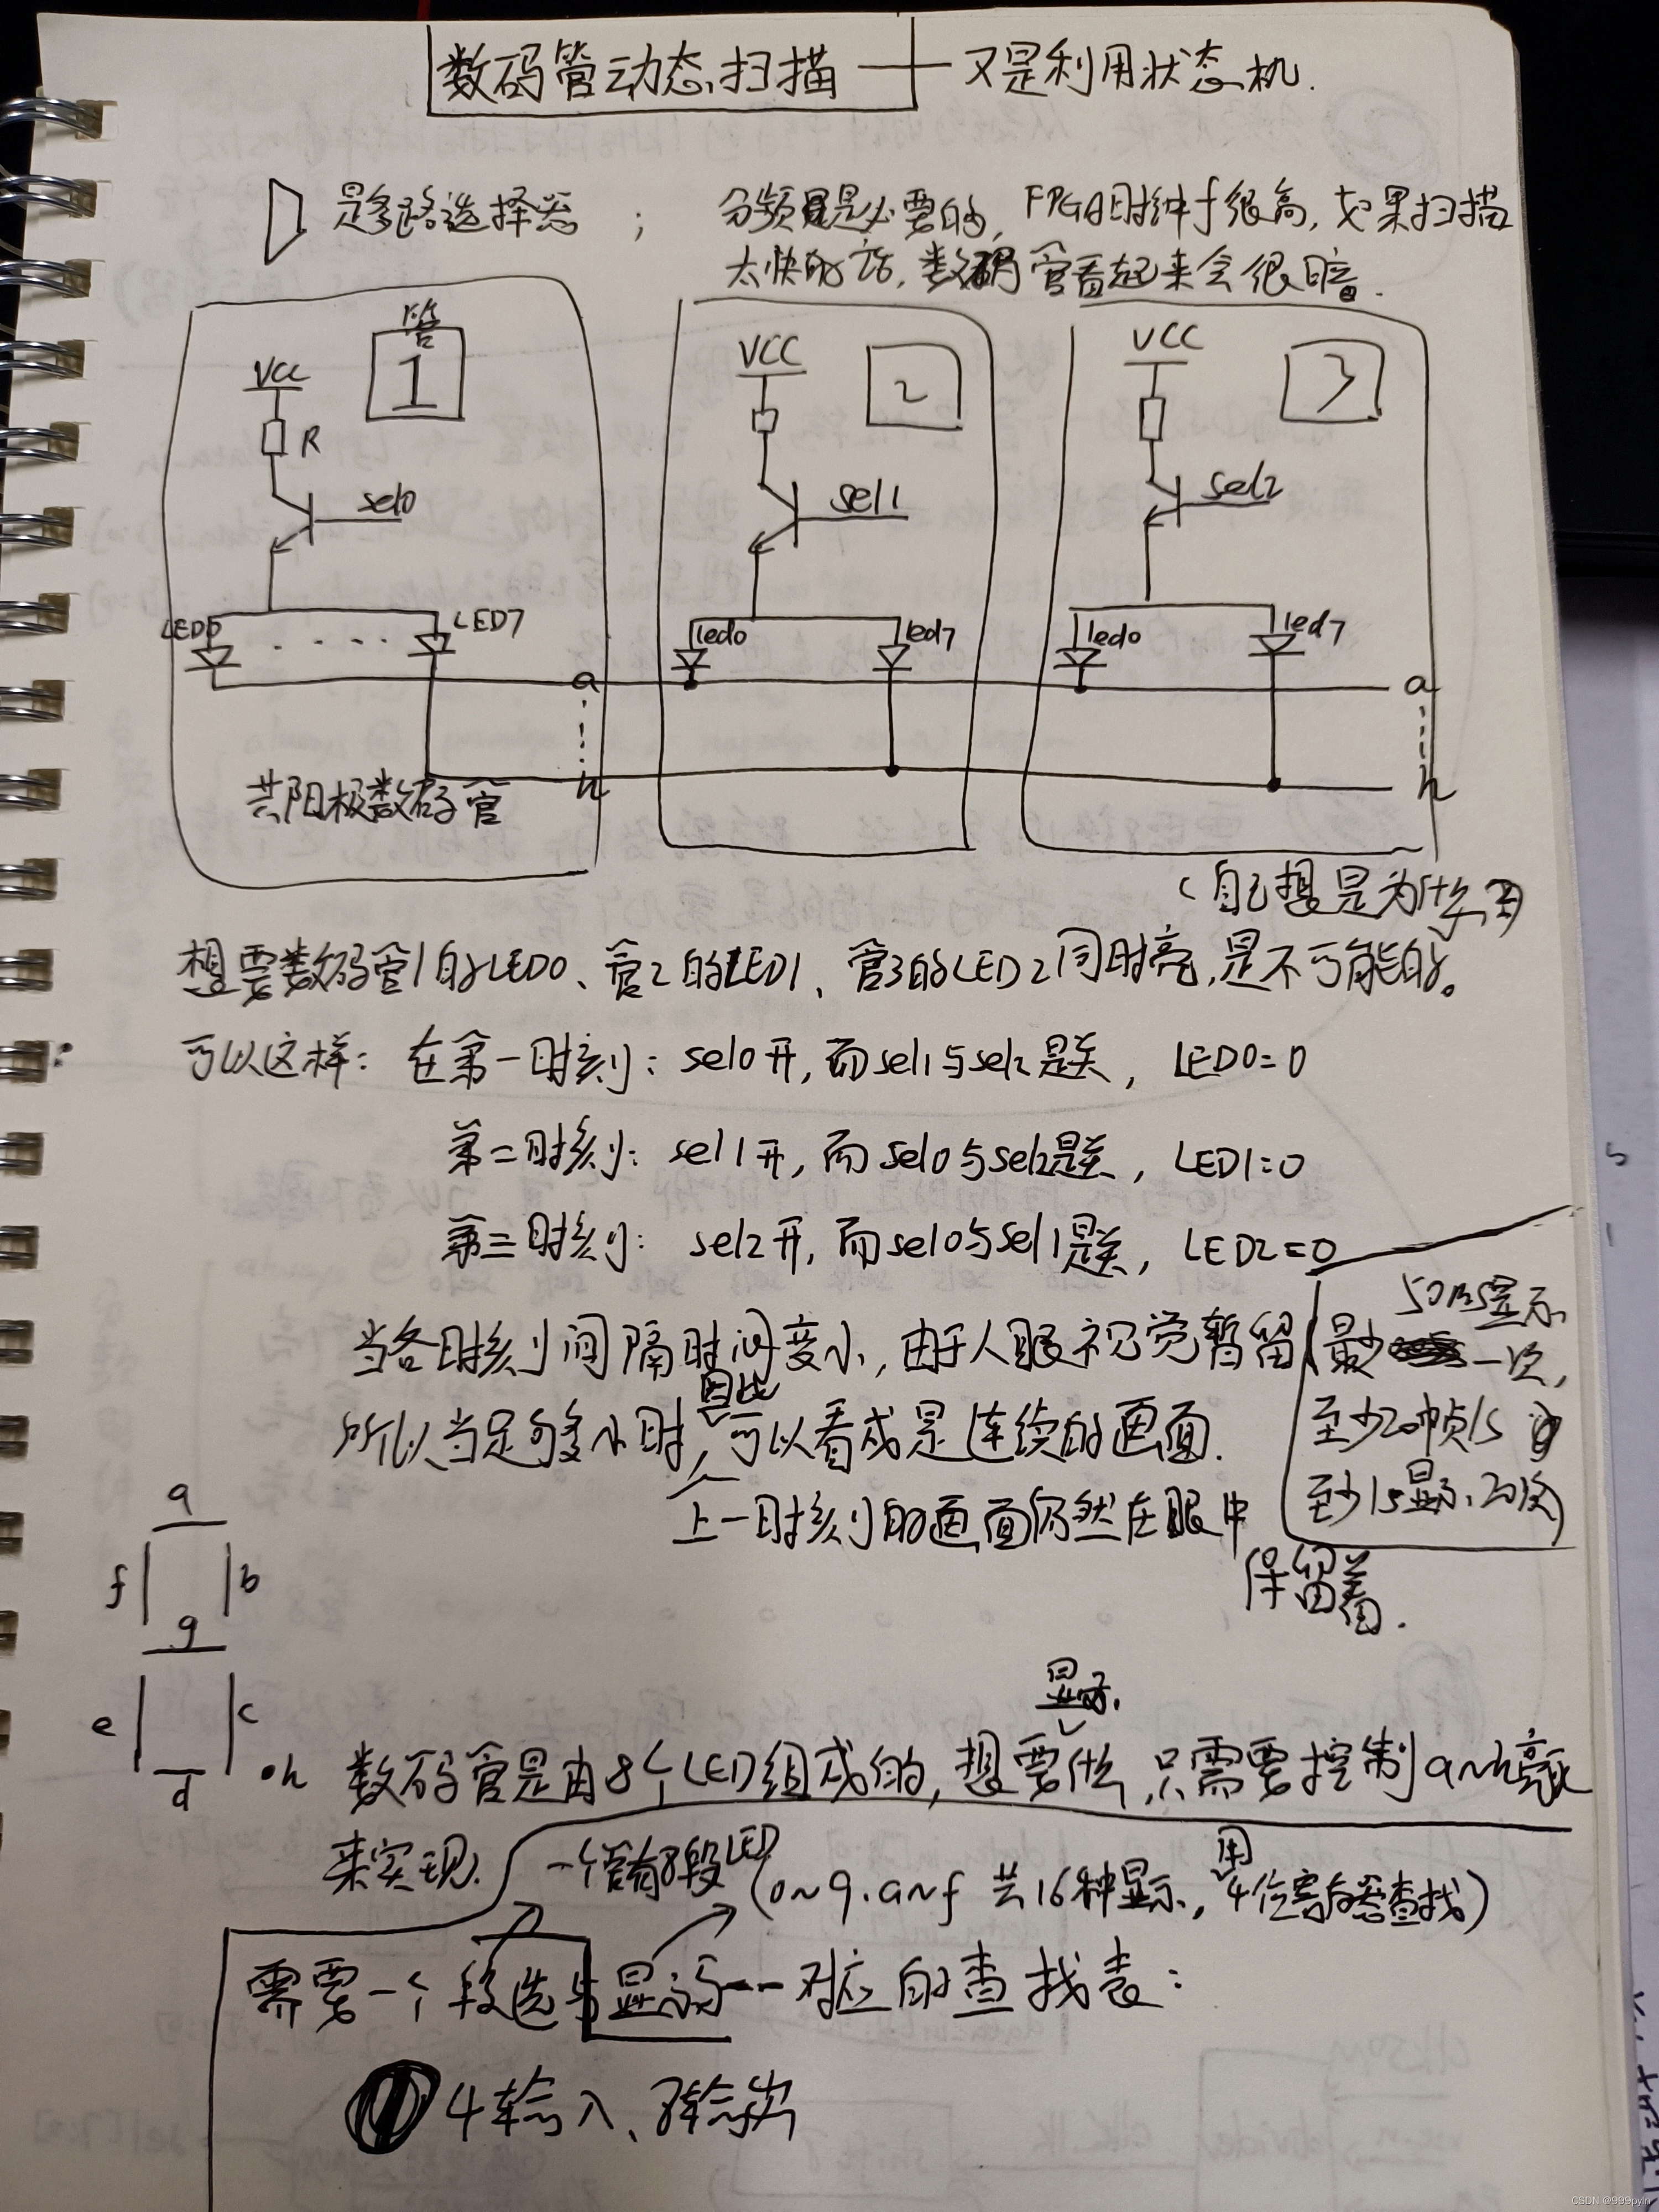 数码管动态扫描 — 又是利用状态机.
是多路选择器 ; 分频是必要的, FPGA时钟f很高, 如果扫描
太快的话, 数码管看起来会很暗.
管
1
VCC
R
sel0
LED0
LED7
2
VCC
sel1
led0
led7
3
VCC
sel2
led0
led7
a
a
h
h
共阳极数码管
(自己想是为什么)
想要数码管1的LED0、管2的LED1、管3的LED2同时亮,是不可能的。
可以这样: 在第一时刻: sel0开, 而sel1与sel2是关, LED0=0
第二时刻: sel1开, 而sel0与sel2是关, LED1=0
第三时刻: sel2开, 而sel0与sel1是关, LED2=0
当各时刻间隔时间变小, 由于人眼视觉暂留
(最少50ms显示一次,
至少20帧/s
至少1s显示20次)
所以当足够小时, 因此可以看成是连续的画面.
上一时刻的画面仍然在眼中
保留着.
a
f
b
g
e
c
d
h
显示
数码管是由8个LED组成的, 想要什么, 只需要控制a~h亮灭
来实现.
一个管有8段LED
(0~9.a~f 共16种显示, 用4位寄存器查找)
需要一个段选与显示一一对应的查找表:
4输入、8输出
CSDN @999pyln